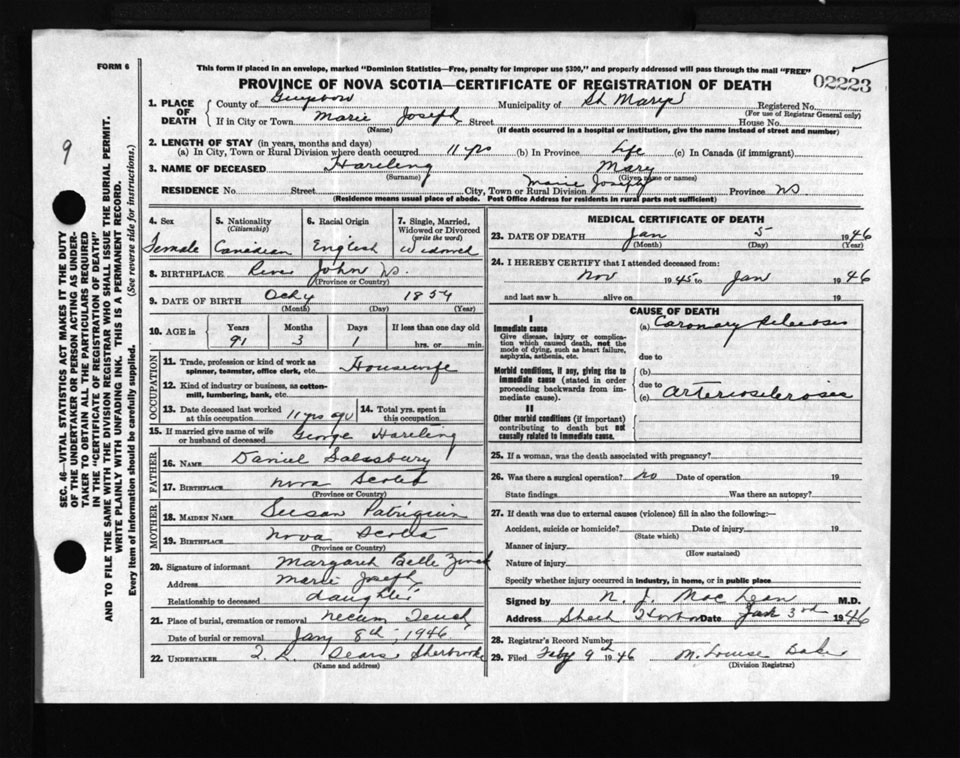 FORM 6
This form if placed in an envelope, marked "Dominion Statistics—Free, penalty for improper use $300," and properly addressed will pass through the mail "FREE"
PROVINCE OF NOVA SCOTIA—CERTIFICATE OF REGISTRATION OF DEATH
02223
9
SEC. 46—VITAL STATISTICS ACT MAKES IT THE DUTY
OF THE UNDERTAKER OR PERSON ACTING AS UNDER-
TAKER TO OBTAIN ALL THE PARTICULARS REQUIRED
IN THE "CERTIFICATE OF REGISTRATION OF DEATH"
AND TO FILE THE SAME WITH THE DIVISION REGISTRAR WHO SHALL ISSUE THE BURIAL PERMIT.
WRITE PLAINLY WITH UNFADING INK. THIS IS A PERMANENT RECORD.
Every item of information should be carefully supplied. (See reverse side for instructions.)
1. PLACE OF DEATH
County of Guysboro Municipality of St Mary's Registered No.
(For use of Registrar General only)
If in City or Town Marie Joseph Street House No.
(Name) (If death occurred in a hospital or institution, give the name instead of street and number)
2. LENGTH OF STAY (in years, months and days)
(a) In City, Town or Rural Division where death occurred 11 yrs (b) In Province Life (c) In Canada (if immigrant)
3. NAME OF DECEASED Hartling Mary
(Surname) (Given name or names)
RESIDENCE No. Street City, Town or Rural Division Marie Joseph Province NS
(Residence means usual place of abode. Post Office Address for residents in rural parts not sufficient)
4. Sex Female
5. Nationality (Citizenship) Canadian
6. Racial Origin English
7. Single, Married, Widowed or Divorced (write the word) Widowed
8. BIRTHPLACE River John NS.
(Province or Country)
9. DATE OF BIRTH Oct 4 1854
(Month) (Day) (Year)
10. AGE in Years Months Days If less than one day old
91 3 1 hrs. or min.
OCCUPATION
11. Trade, profession or kind of work as spinner, teamster, office clerk, etc. Housewife
12. Kind of industry or business, as cotton-mill, lumbering, bank, etc.
13. Date deceased last worked at this occupation 11 yrs ago
14. Total yrs. spent in this occupation
15. If married give name of wife or husband of deceased George Hartling
FATHER
16. NAME Daniel Salsbury
17. BIRTHPLACE Nova Scotia
(Province or Country)
MOTHER
18. MAIDEN NAME Susan Patriquin
19. BIRTHPLACE Nova Scotia
(Province or Country)
20. Signature of informant Margaret Belle Zinck
Address Marie Joseph
Relationship to deceased daughter
21. Place of burial, cremation or removal Necum Teuch
Date of burial or removal Jany 8th, 1946
22. UNDERTAKER Sears Sherbrooke
(Name and address)
MEDICAL CERTIFICATE OF DEATH
23. DATE OF DEATH Jan 5 1946
(Month) (Day) (Year)
24. I HEREBY CERTIFY that I attended deceased from:
Nov 1945 to Jan 1946
and last saw h alive on 19
CAUSE OF DEATH
I
Immediate cause
Give disease, injury or complica-
tion which caused death, not the
mode of dying, such as heart failure,
asphyxia, asthenia, etc.
(a) Coronary Sclerosis
due to
Morbid conditions, if any, giving rise to
immediate cause (stated in order
proceeding backwards from im-
mediate cause).
(b)
due to
(c) arteriosclerosis
II
Other morbid conditions (if important)
contributing to death but not
causally related to immediate cause.
25. If a woman, was the death associated with pregnancy?
26. Was there a surgical operation? no Date of operation 19
State findings Was there an autopsy?
27. If death was due to external causes (violence) fill in also the following:—
Accident, suicide or homicide? Date of injury 19
(State which)
Manner of injury
(How sustained)
Nature of injury
Specify whether injury occurred in industry, in home, or in public place
Signed by N. J. MacLean M.D.
Address Sheet Harbor Date Jan 3rd 1946
28. Registrar's Record Number
29. Filed Feby 9th 1946 M. Louise Baker
(Division Registrar)